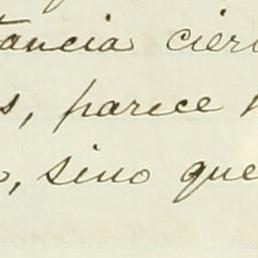 tancia cier
s, parece
o, sino que